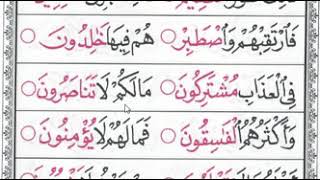 فَارْتَقِبْهُمْ وَاصْطَبِرْ ○ هُمْ فِيهَا خَالِدُونَ ○
فِي الْعَذَابِ مُشْتَرِكُونَ ○ مَالَكُمْ لَا تَنَاصَرُونَ ○
وَأَكْثَرُهُمُ الْفَاسِقُونَ ○ فَمَالَهُمْ لَا يُؤْمِنُونَ ○